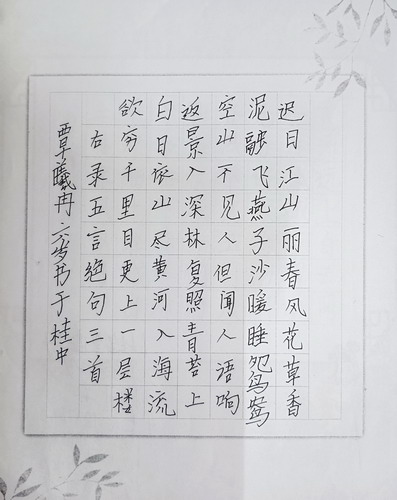 迟日江山丽春风花草香
泥融飞燕子沙暖睡鸳鸯
空山不见人但闻人语响
返景入深林复照青苔上
白日依山尽黄河入海流
欲穷千里目更上一层楼
右录五言绝句三首
覃曦冉六岁书于桂中